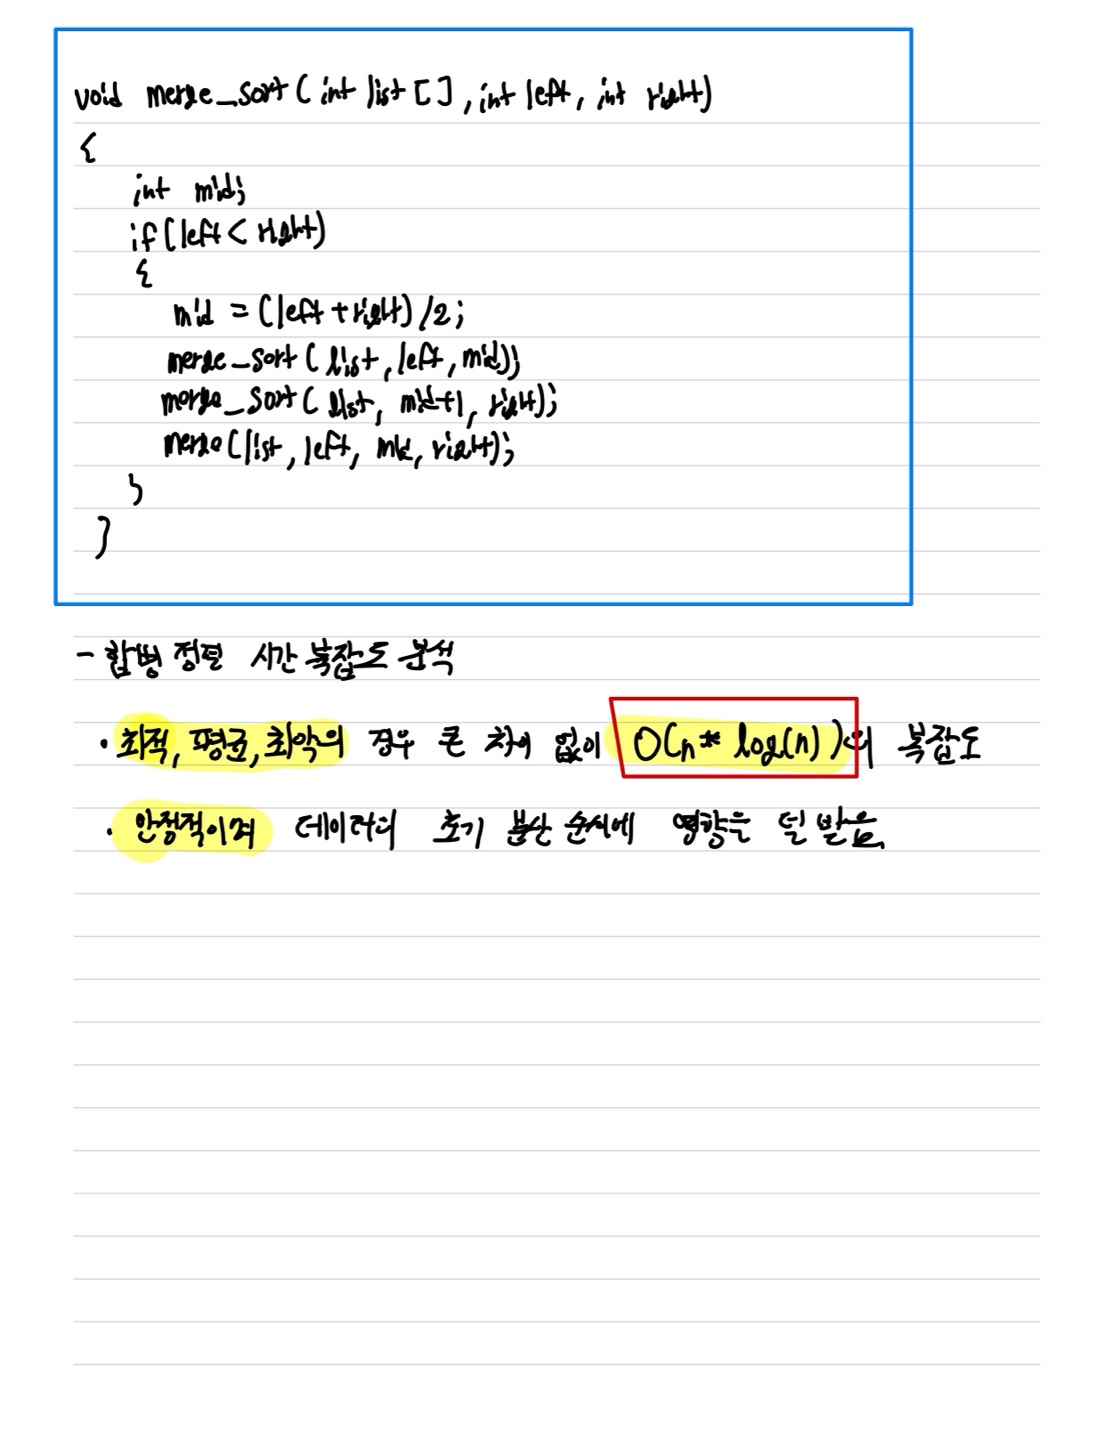 void merge_sort( int list[], int left, int right)
{
int mid;
if(left < right)
{
mid = (left + right) /2;
merge_sort( list, left, mid);
merge_sort( list, mid+1, right);
merge(list, left, mid, right);
}
}
- 합병 정렬 시간 복잡도 분석
· 최적, 평균, 최악의 경우 큰 차이 없이 O(n * log(n))의 복잡도
· 안정적이며 데이터의 초기 분산 순서에 영향을 덜 받음